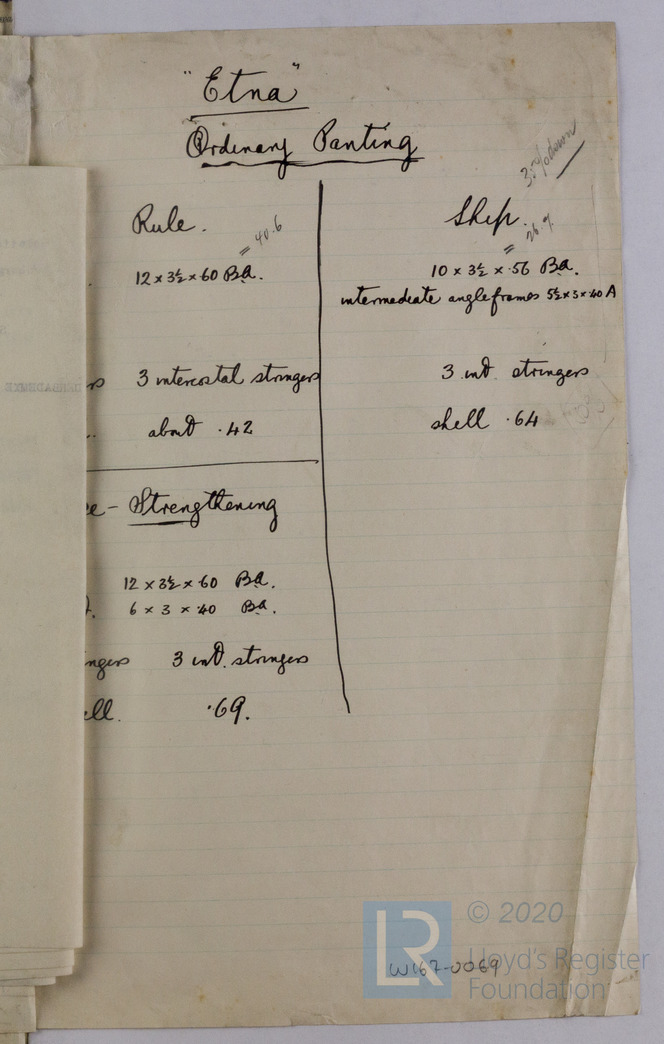 "Etna"
Ordinary Panting
Rule.
= 40.6
12 x 3½ x .60 B.a.
3 intercostal stringers
about .42
Ship.
= 26.9
10 x 3½ x .56 B.a.
intermediate angle frames 5½ x 3 x .40 A
3 int. stringers
shell .64
e - Strengthening
12 x 3½ x .60 B.a.
6 x 3 x .40 B.a.
ngers 3 int. stringers
ell. .69.
© 2020
Lloyd's Register
Foundation
LR
W167-0069